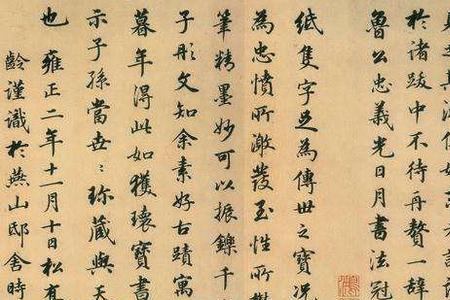 於諸跋中不待再贅一辭
魯公忠義光日月書法冠
紙隻字足為傳世之寶況
為忠憤所激發至性所鬱
筆精墨妙可以振鑠千
子彤文知余素好古蹟寓
暮年得此如獲瓌寶書
示子孫當世〻珍藏與天
也 雍正二年十一月十日松
齡謹識於燕山邸舍時